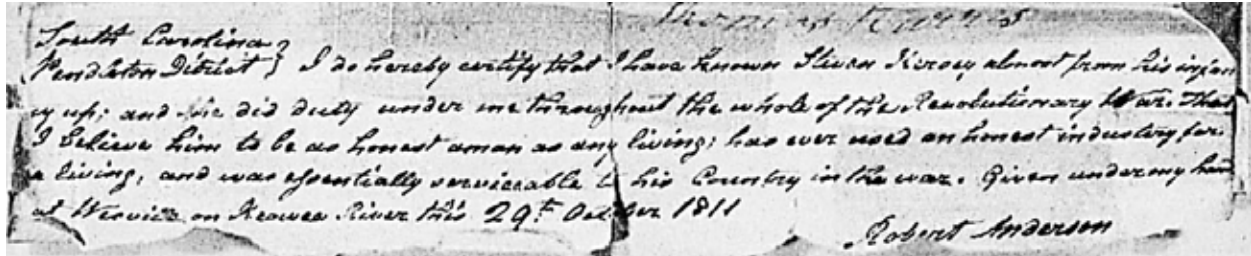 South Carolina }
Pendleton District } I do hereby certify that I have known Stiven Kersey almost from his infan
cy up; and he did duty under me throughout the whole of the Revolutionary War. That
I believe him to be as honest a man as any living; has ever used an honest industry for
a living, and was essentially serviceable to his Country in the war. Given under my hand
at on Keowea River this 29th October 1811
Robert Anderson